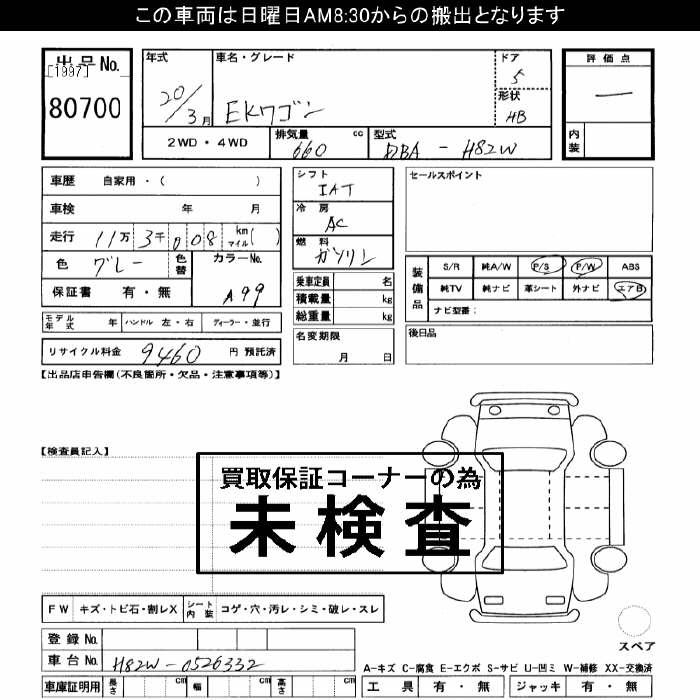 この車両は日曜日AM8:30からの搬出となります
出品No.
[1997]
80700
年式
20/3月
車名・グレード
EKワゴン
ドア
5
形状
HB
評価点
―
内装
2WD・4WD
排気量 660 cc
型式 DBA - H82W
車歴 自家用・( )
車検 年 月
走行 11万3千008 km マイル( )
色 グレー 色替
カラーNo. A99
保証書 有・無
モデル年式 年 ハンドル 左・右 ディーラー・並行
リサイクル料金 9460 円 預託済
シフト
IAT
冷房
AC
燃料
ガソリン
乗車定員 名
積載量 kg
総重量 kg
名変期限
月 日
セールスポイント
装備品
S/R 純A/W P/S P/W ABS
純TV 純ナビ 革シート 外ナビ エアB
ナビ型番:
後日品
【出品店申告欄(不良箇所・欠品・注意事項等)】
【検査員記入】
買取保証コーナーの為
未検査
FW キズ・トビ石・割レX シート内装 コゲ・穴・汚レ・シミ・破レ・スレ
登録No.
車台No. H82W-0526332
車庫証明用 長さ cm 幅 cm 高さ cm
スペア
A-キズ C-腐食 E-エクボ S-サビ U-凹ミ W-補修 XX-交換済
工具 有・無 ジャッキ 有・無